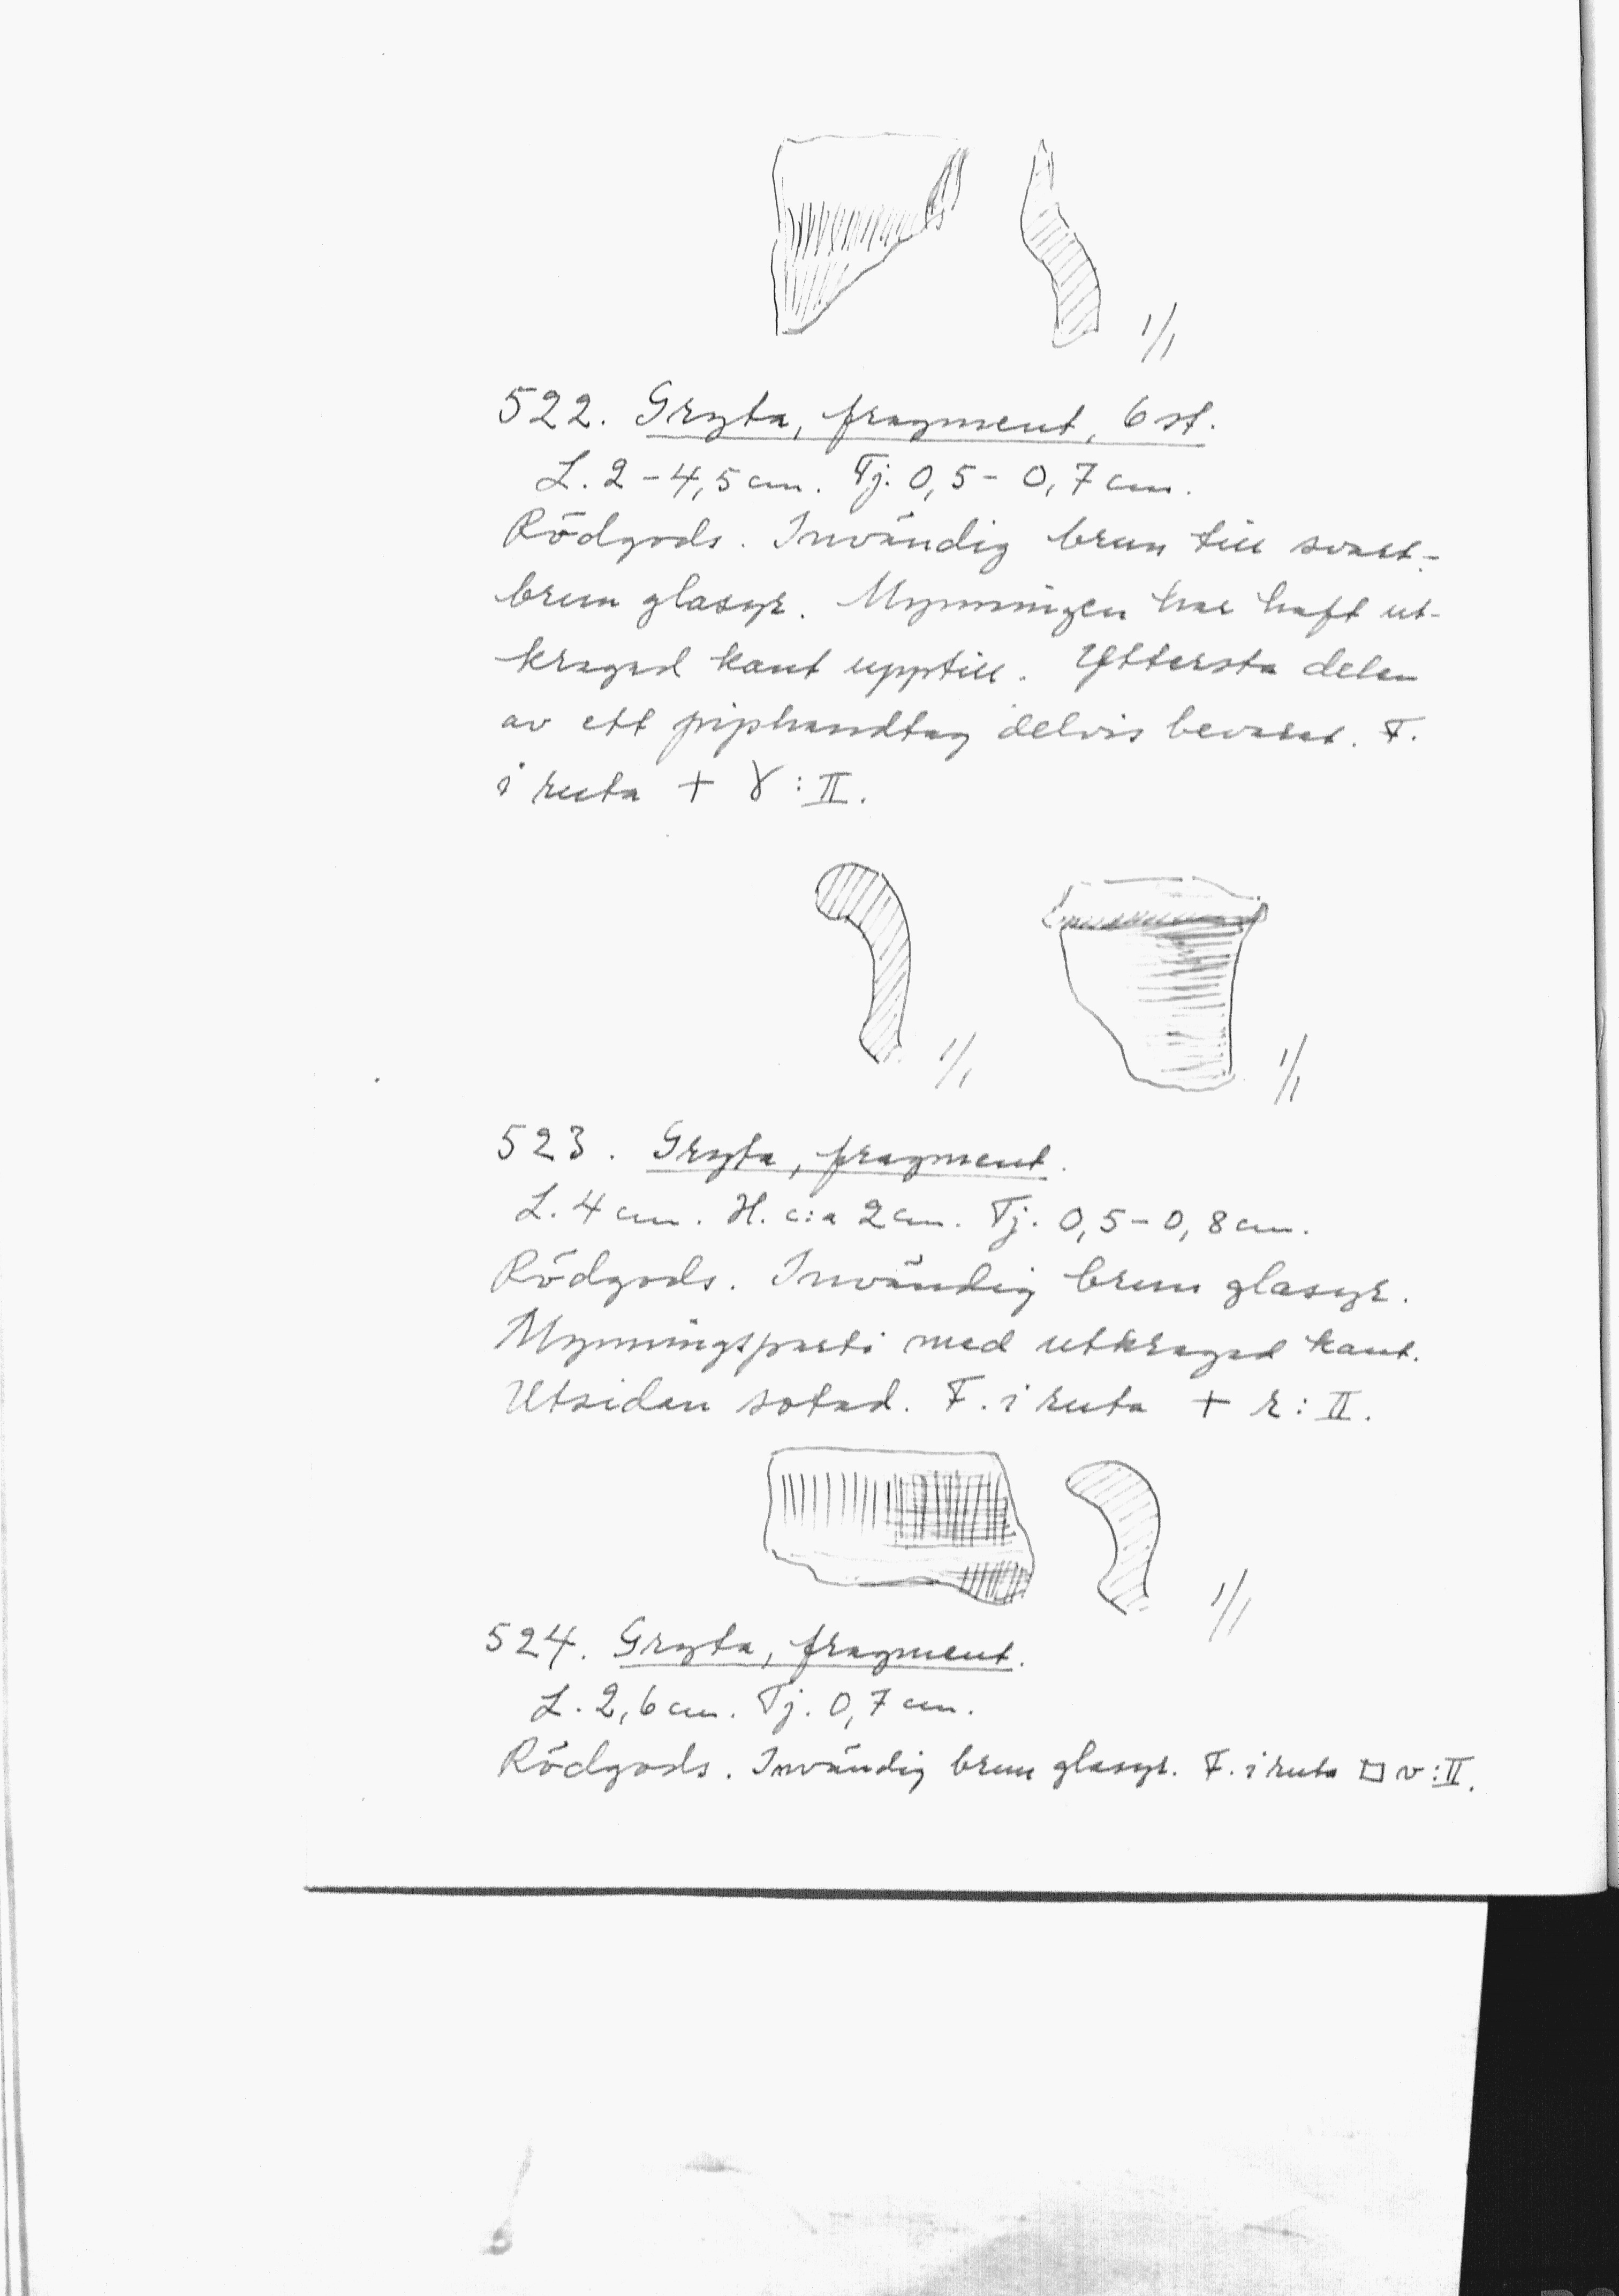 1/1
522. Gryta, fragment, 6 st.
L. 2-4,5 cm. Tj. 0,5-0,7 cm.
Rödgods. Invändig brun till svart-
brun glasyr. Mynningen har haft ut-
kragad kant upptill. Yttersta delen
av ett piphandtag delvis bevarat. F.
i ruta + γ:II.
1/1 1/1
523. Gryta, fragment.
L. 4 cm. H. c:a 2 cm. Tj. 0,5-0,8 cm.
Rödgods. Invändig brun glasyr.
Mynningsparti med utkragad kant.
Utsidan sotad. F. i ruta + r:II.
1/1
524. Gryta, fragment.
L. 2,6 cm. Tj. 0,7 cm.
Rödgods. Invändig brun glasyr. F. i ruta □ v:II.